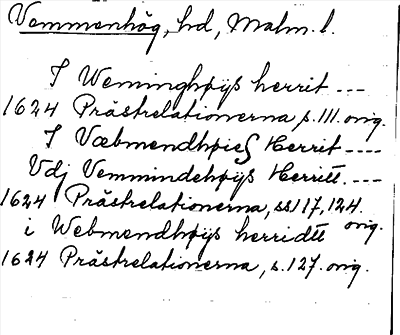 Vemmenhög, hd, Malm. l.
I Weminghøÿs herrit ---
1624 Prästrelationerna s. 111. orig.
I Væbmendhøies Herrit ----
Vdj Vemmindehøÿs Herritt. ----
1624 Prästrelationerna, ss 117, 124. orig.
i Webmendhøÿs herridtt
1624 Prästrelationerna, s. 127. orig.